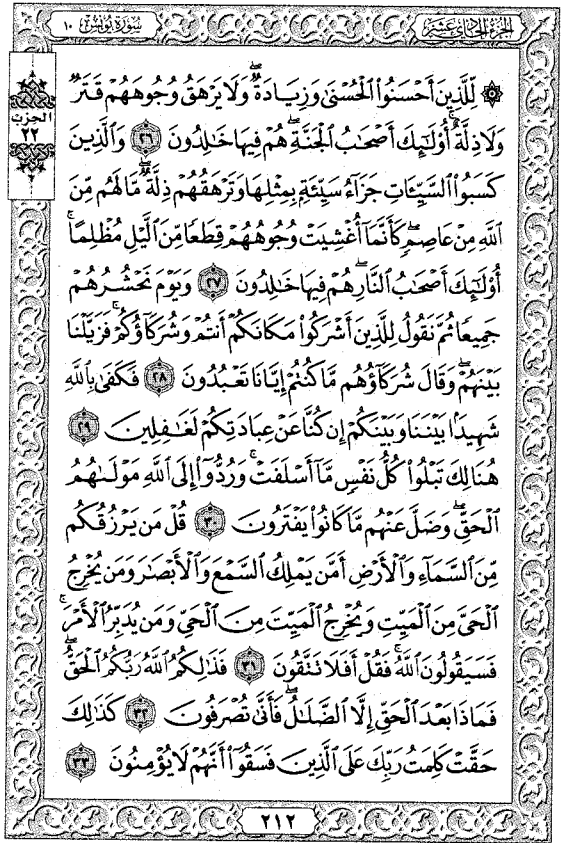 الجزء الحادي عشر
سورة يونس ١٠
الحزب
٢٢
۞ لِّلَّذِينَ أَحْسَنُوا۟ ٱلْحُسْنَىٰ وَزِيَادَةٌ ۖ وَلَا يَرْهَقُ وُجُوهَهُمْ قَتَرٌ
وَلَا ذِلَّةٌ ۚ أُو۟لَٰٓئِكَ أَصْحَٰبُ ٱلْجَنَّةِ ۖ هُمْ فِيهَا خَٰلِدُونَ ٢٦ وَٱلَّذِينَ
كَسَبُوا۟ ٱلسَّيِّـَٔاتِ جَزَآءُ سَيِّئَةٍۭ بِمِثْلِهَا وَتَرْهَقُهُمْ ذِلَّةٌ ۖ مَّا لَهُم مِّنَ
ٱللَّهِ مِنْ عَاصِمٍ ۖ كَأَنَّمَآ أُغْشِيَتْ وُجُوهُهُمْ قِطَعًا مِّنَ ٱلَّيْلِ مُظْلِمًا ۚ
أُو۟لَٰٓئِكَ أَصْحَٰبُ ٱلنَّارِ ۖ هُمْ فِيهَا خَٰلِدُونَ ٢٧ وَيَوْمَ نَحْشُرُهُمْ
جَمِيعًا ثُمَّ نَقُولُ لِلَّذِينَ أَشْرَكُوا۟ مَكَانَكُمْ أَنتُمْ وَشُرَكَآؤُكُمْ ۚ فَزَيَّلْنَا
بَيْنَهُمْ ۖ وَقَالَ شُرَكَآؤُهُم مَّا كُنتُمْ إِيَّانَا تَعْبُدُونَ ٢٨ فَكَفَىٰ بِٱللَّهِ
شَهِيدًۢا بَيْنَنَا وَبَيْنَكُمْ إِن كُنَّا عَنْ عِبَادَتِكُمْ لَغَٰفِلِينَ ٢٩
هُنَالِكَ تَبْلُوا۟ كُلُّ نَفْسٍ مَّآ أَسْلَفَتْ ۚ وَرُدُّوٓا۟ إِلَى ٱللَّهِ مَوْلَىٰهُمُ
ٱلْحَقِّ ۖ وَضَلَّ عَنْهُم مَّا كَانُوا۟ يَفْتَرُونَ ٣٠ قُلْ مَن يَرْزُقُكُم
مِّنَ ٱلسَّمَآءِ وَٱلْأَرْضِ أَمَّن يَمْلِكُ ٱلسَّمْعَ وَٱلْأَبْصَٰرَ وَمَن يُخْرِجُ
ٱلْحَىَّ مِنَ ٱلْمَيِّتِ وَيُخْرِجُ ٱلْمَيِّتَ مِنَ ٱلْحَىِّ وَمَن يُدَبِّرُ ٱلْأَمْرَ ۚ
فَسَيَقُولُونَ ٱللَّهُ ۚ فَقُلْ أَفَلَا تَتَّقُونَ ٣١ فَذَٰلِكُمُ ٱللَّهُ رَبُّكُمُ ٱلْحَقُّ ۖ
فَمَاذَا بَعْدَ ٱلْحَقِّ إِلَّا ٱلضَّلَٰلُ ۖ فَأَنَّىٰ تُصْرَفُونَ ٣٢ كَذَٰلِكَ
حَقَّتْ كَلِمَتُ رَبِّكَ عَلَى ٱلَّذِينَ فَسَقُوٓا۟ أَنَّهُمْ لَا يُؤْمِنُونَ ٣٣
٢١٢